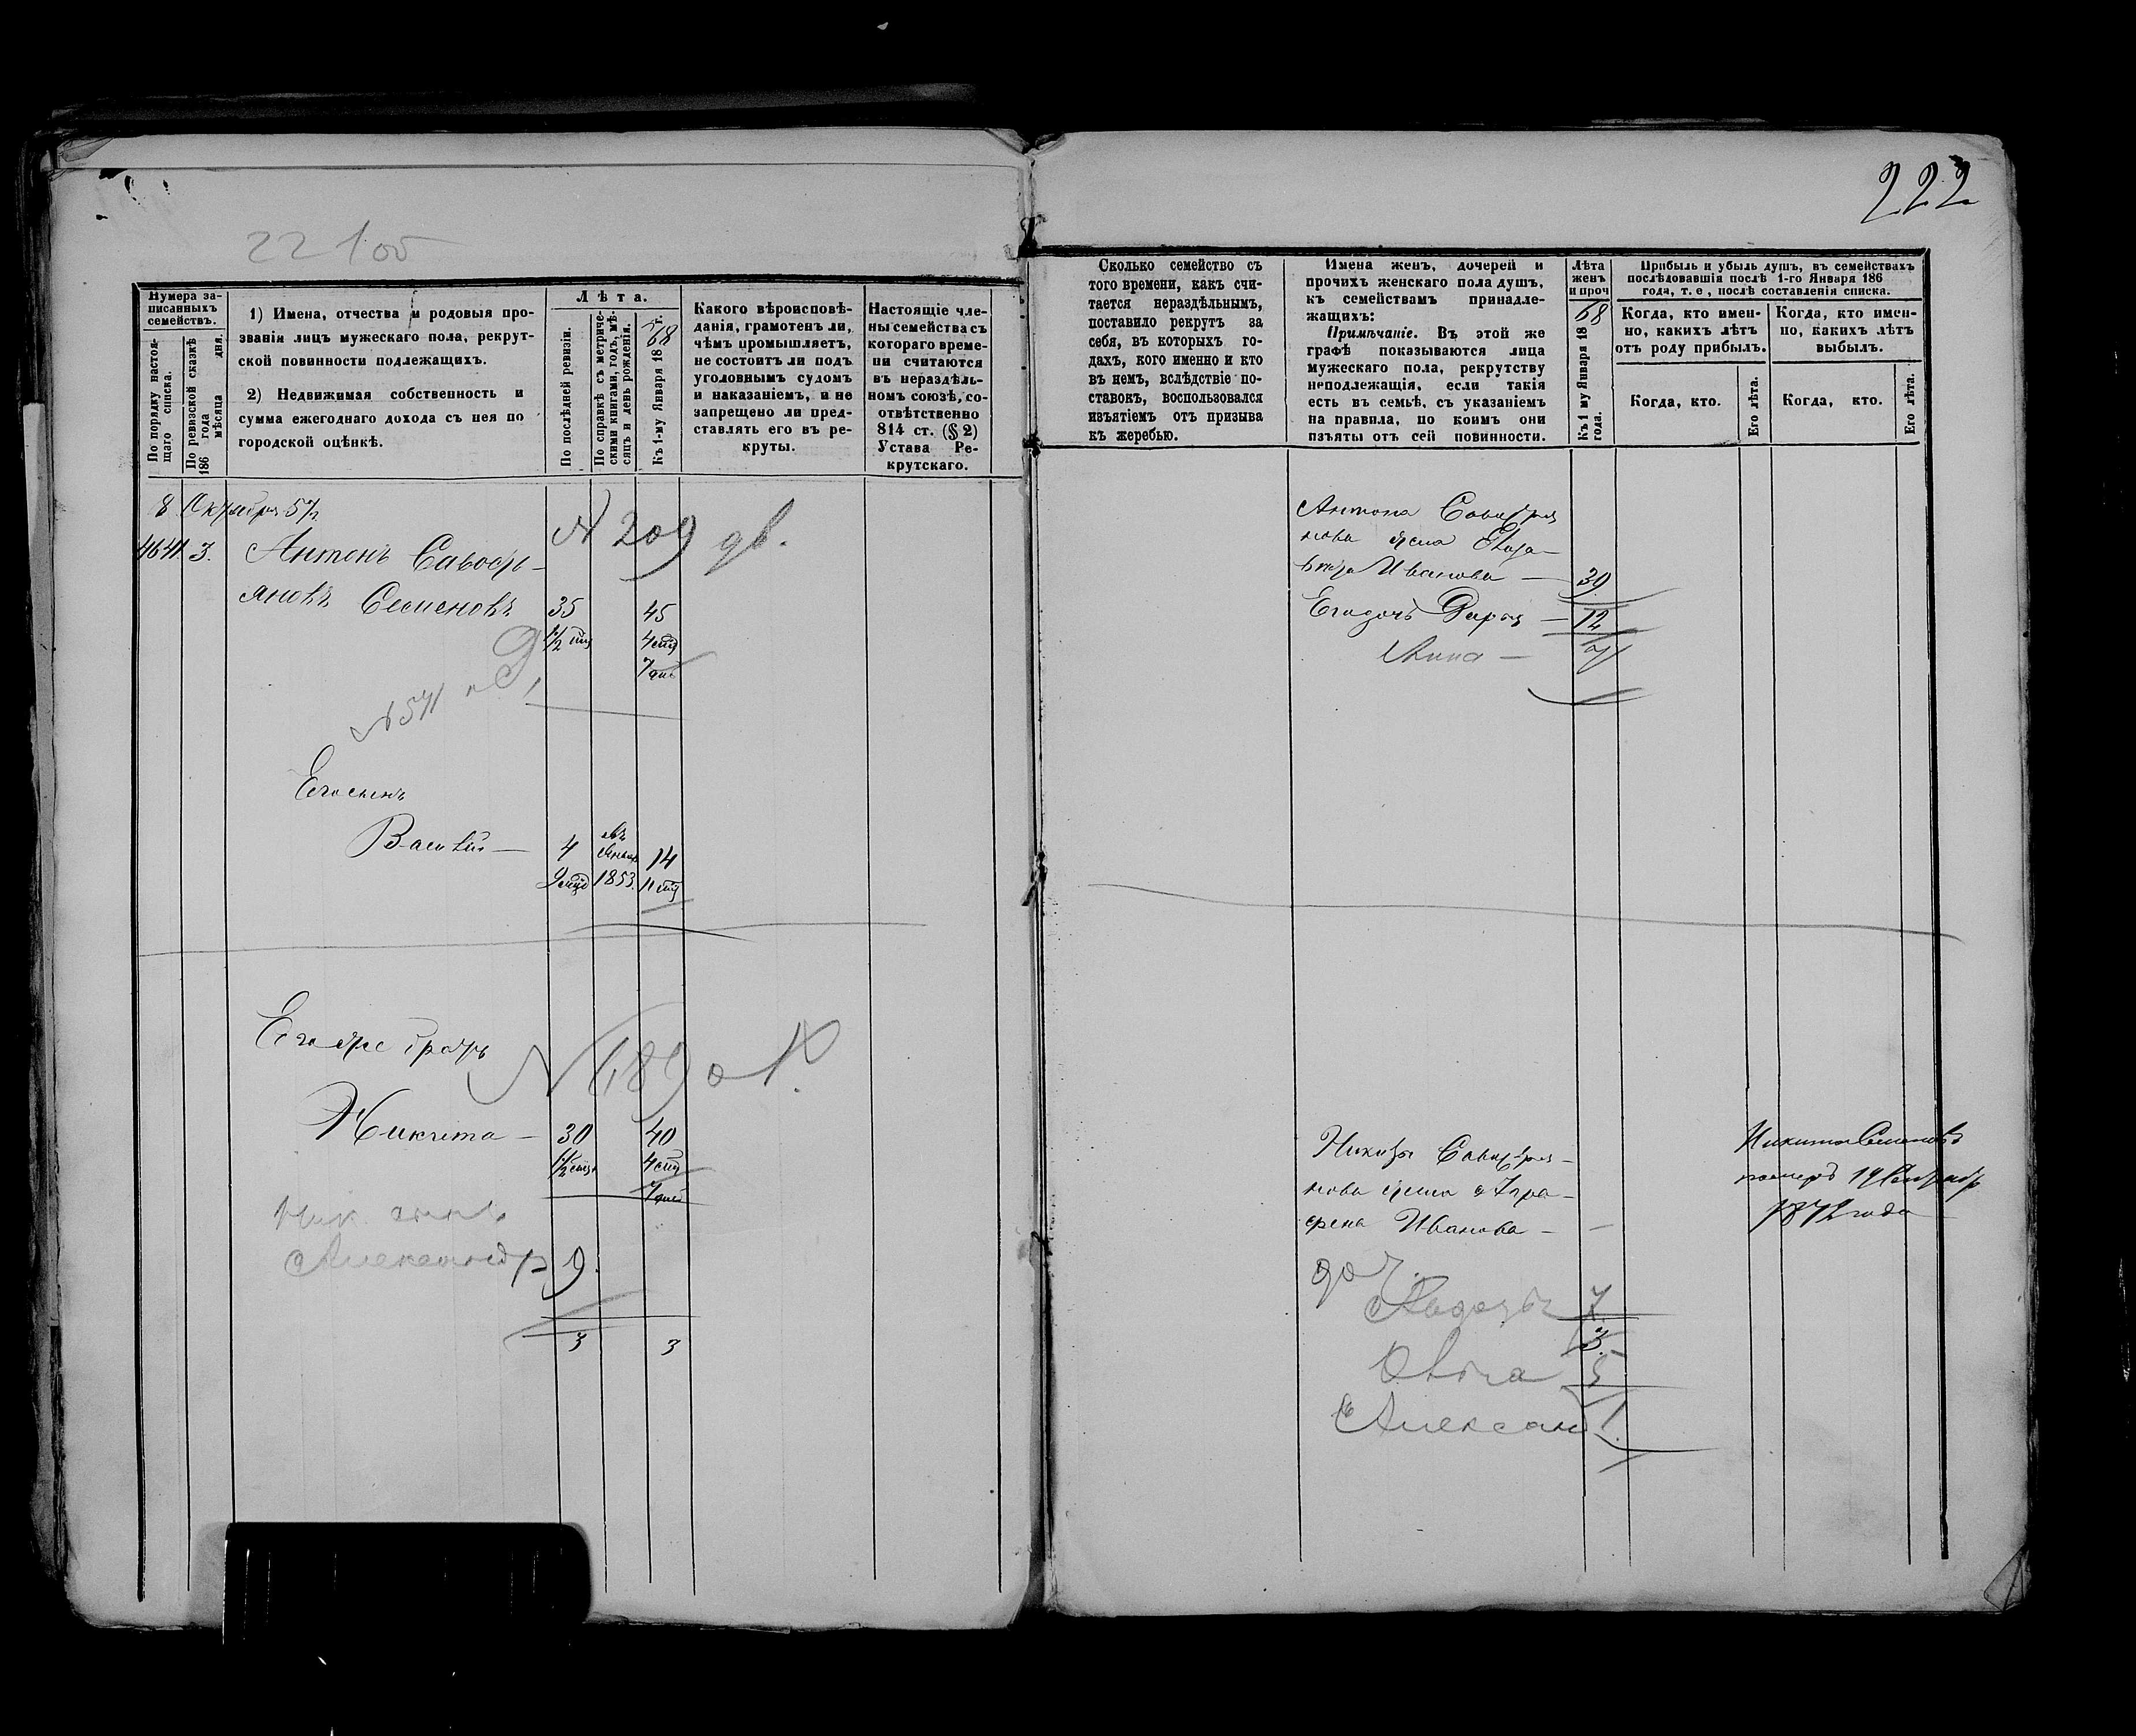 222
Нумера за-
писанныхъ
семействъ.
По порядку настоя-
щаго списка.
По ревизской сказкѣ
186 года
мѣсяца дня.
1) Имена, отчества и родовыя про-
званія лицъ мужескаго пола, рекрут-
ской повинности подлежащихъ.
2) Недвижимая собственность и
сумма ежегоднаго дохода съ нея по
городской оцѣнкѣ.
Лѣта.
По послѣдней ревизіи.
По справкѣ съ метриче-
скими книгами, годъ, мѣ-
сяцъ и день рожденія.
Къ 1-му Января 1868 г.
Какого вѣроисповѣ-
данія, грамотенъ ли,
чѣмъ промышляетъ,
не состоитъ ли подъ
уголовнымъ судомъ
и наказаніемъ, и не
запрещено ли пред-
ставлять его въ ре-
круты.
Настоящіе чле-
ны семейства съ
котораго време-
ни считаются
въ нераздѣль-
номъ союзѣ, со-
отвѣтственно
814 ст. (§ 2)
Устава Ре-
крутскаго.
8 Октября 57
№ 209 дв.
3. Антонъ Савостья-
новъ Семеновъ 35 45
Его сынъ
Василій — 4 14
1853
Его же братъ
Никита — 30 40
Александр 9.
3 3
Сколько семейство съ
того времени, какъ счи-
тается нераздѣльнымъ,
поставило рекрутъ за
себя, въ которыхъ го-
дахъ, кого именно и кто
въ немъ, вслѣдствіе по-
ставокъ, воспользовался
изъятіемъ отъ призыва
къ жеребью.
Имена женъ, дочерей и
прочихъ женскаго пола душъ,
къ семействамъ принадле-
жащихъ:
Примѣчаніе. Въ этой же
графѣ показываются лица
мужескаго пола, рекрутству
неподлежащія, если такія
есть въ семьѣ, съ указаніемъ
на правила, по коимъ они
изъяты отъ сей повинности.
Лѣта
женъ
и проч
Къ 1 му Января 1868
года.
Прибыль и убыль душъ, въ семействахъ
послѣдовавшія послѣ 1-го Января 186
года, т. е., послѣ составленія списка.
Когда, кто имен-
но, какихъ лѣтъ
отъ роду прибылъ.
Когда, кто имен-
но, какихъ лѣтъ
выбылъ.
Когда, кто.
Его лѣта.
Когда, кто.
Его лѣта.
Антона Савостья-
нова жена Елиза-
вета Иванова — 39
Его дочь Дарья — 12
Анна —
Никиты Савостья-
нова жена
Иванова —
Никита Семеновъ
1872 года
доч.
7
3
Ольга 5
Алексан 1.